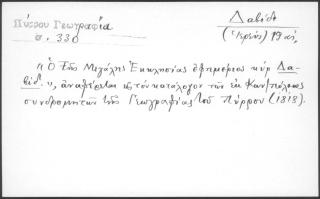 Πύρρου Γεωγραφία
σ. 330
Δαβίδ
(Ἱερεύς) 19 αἰ.
« Ὁ τῆς Μεγάλης Ἐκκλησίας ἐφημέριος κύρ Δα-
βίδ », ἀναφέρεται εἰς τὸν κατάλογον τῶν ἐκ Κων/πόλεως
συνδρομητῶν τῆς Γεωγραφίας τοῦ Πύρρου (1818).